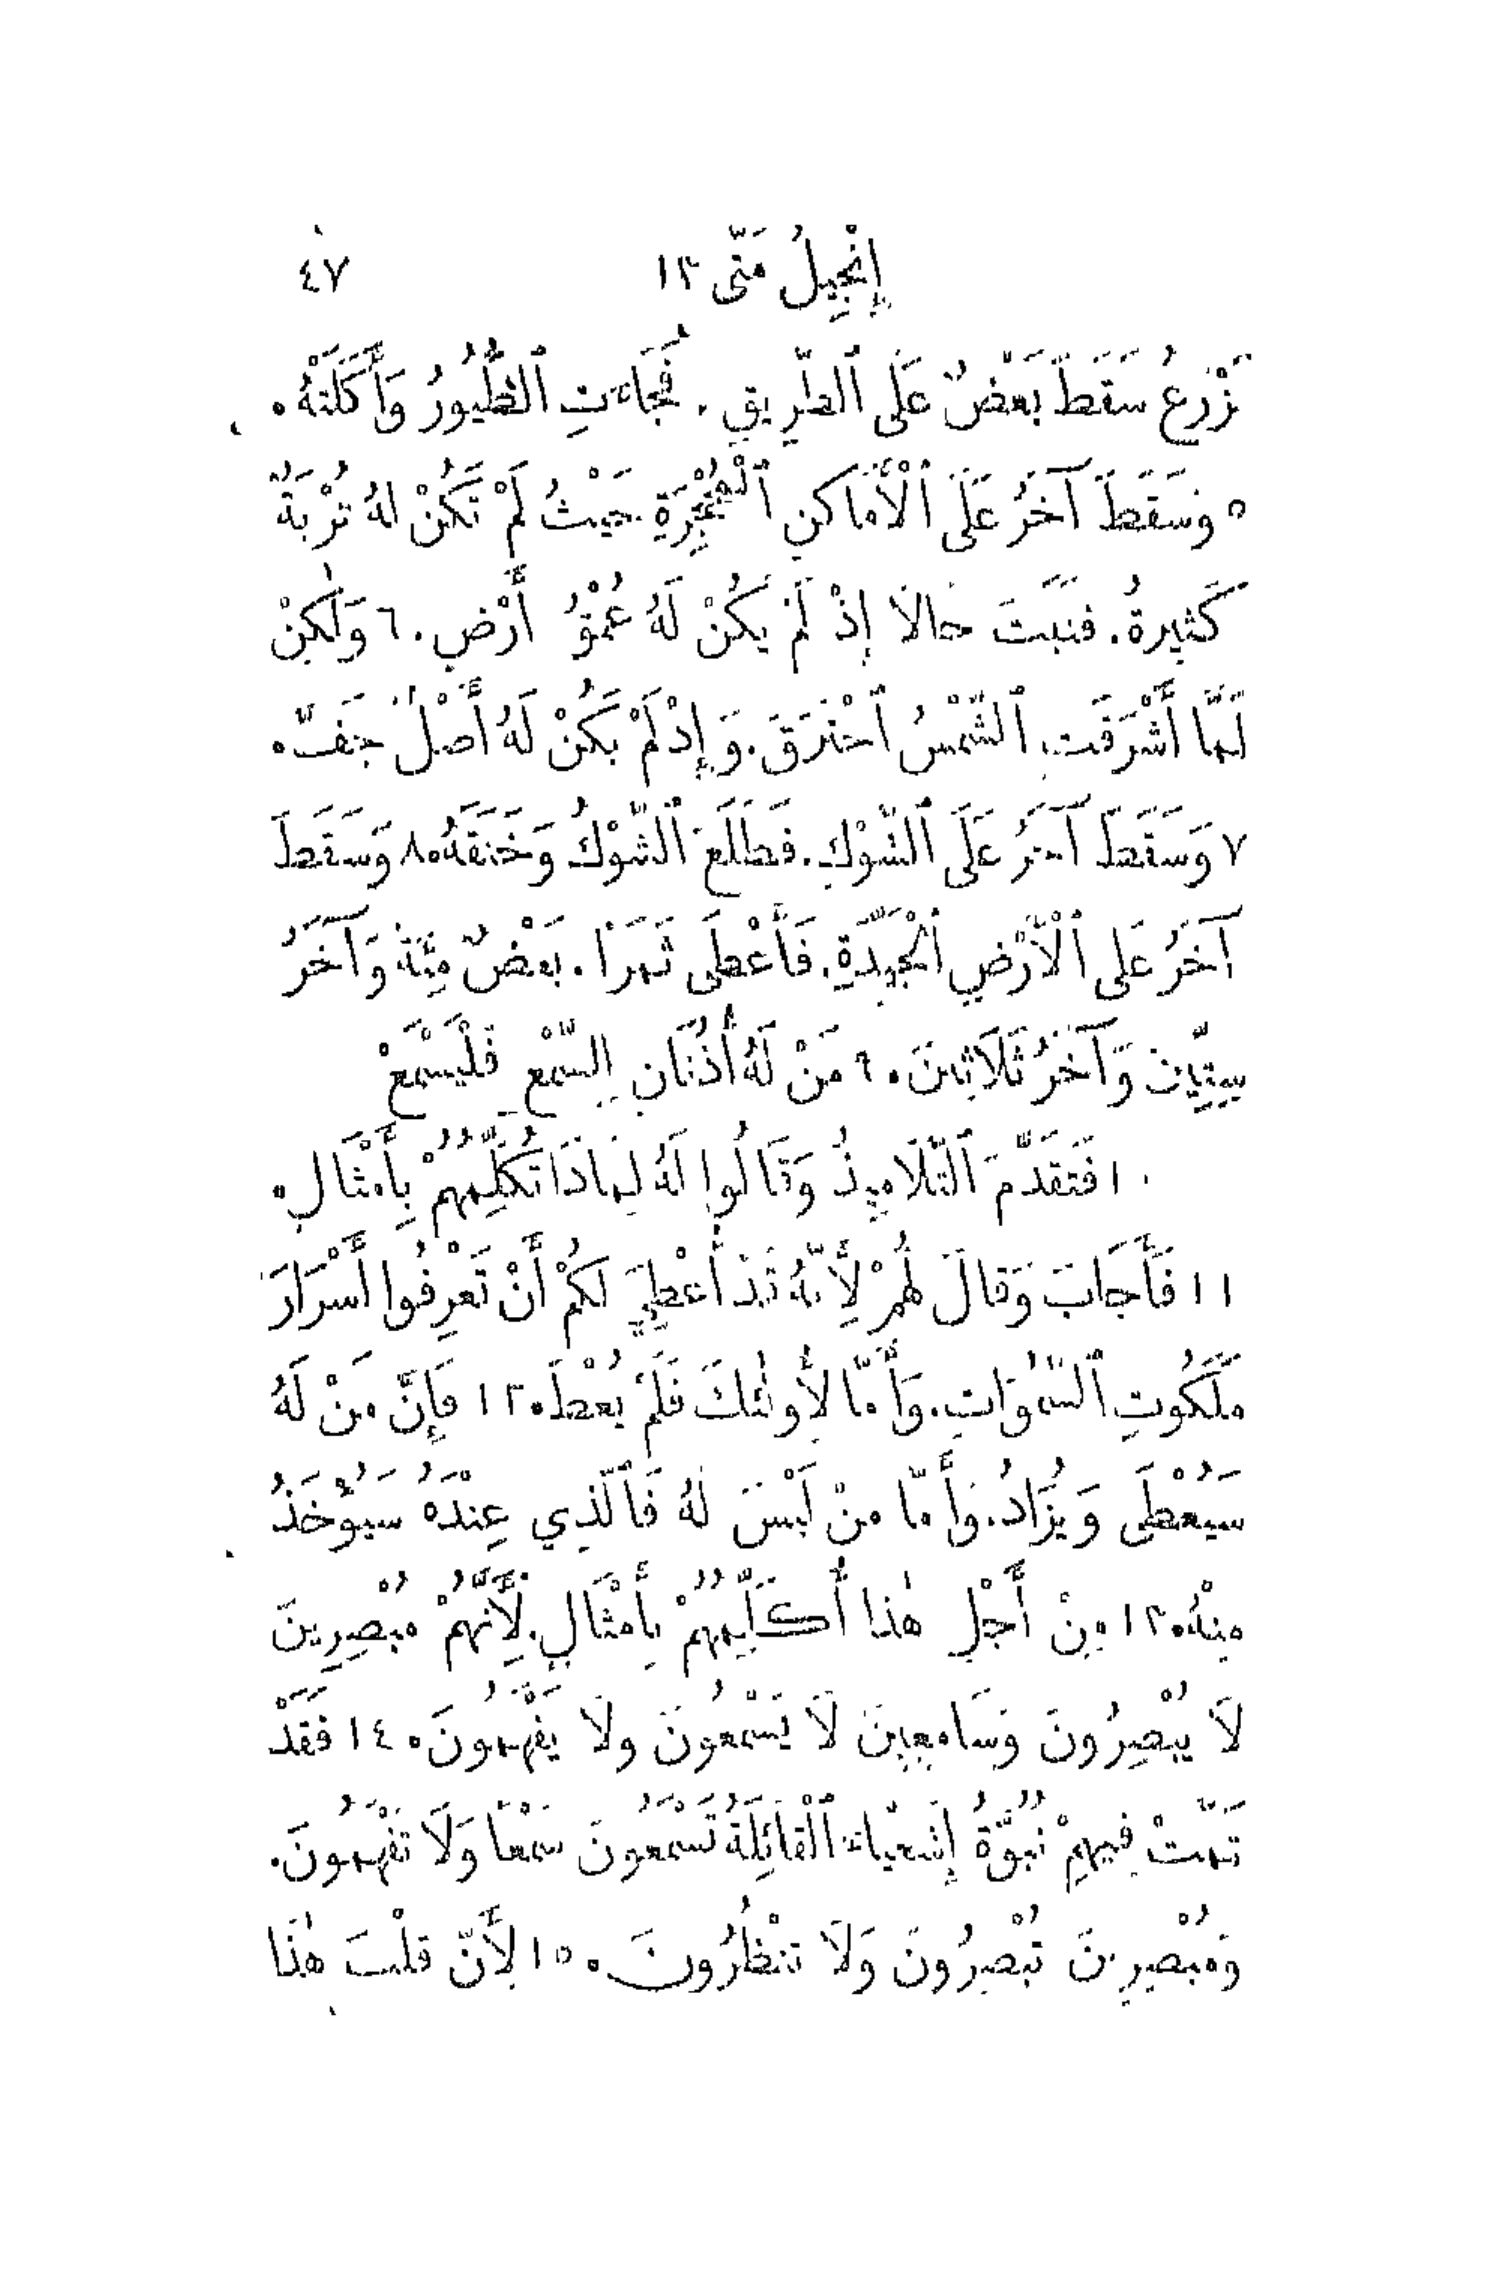 إِنْجِيلُ مَتَّى ١٣ ٤٧
يَزْرَعُ سَقَطَ بَعْضٌ عَلَى ٱلطَّرِيقِ. فَجَاءَتِ ٱلطُّيُورُ وَأَكَلَتْهُ.
٥ وَسَقَطَ آخَرُ عَلَى ٱلْأَمَاكِنِ ٱلْمُحْجِرَةِ حَيْثُ لَمْ تَكُنْ لَهُ تُرْبَةٌ
كَثِيرَةٌ. فَنَبَتَ حَالًا إِذْ لَمْ يَكُنْ لَهُ عُمْقُ أَرْضٍ. ٦ وَلٰكِنْ
لَمَّا أَشْرَقَتِ ٱلشَّمْسُ ٱحْتَرَقَ. وَإِذْ لَمْ يَكُنْ لَهُ أَصْلٌ جَفَّ.
٧ وَسَقَطَ آخَرُ عَلَى ٱلشَّوْكِ. فَطَلَعَ ٱلشَّوْكُ وَخَنَقَهُ. ٨ وَسَقَطَ
آخَرُ عَلَى ٱلْأَرْضِ ٱلْجَيِّدَةِ. فَأَعْطَى ثَمَرًا. بَعْضٌ مِئَةً وَآخَرُ
سِتِّينَ وَآخَرُ ثَلَاثِينَ. ٩ مَنْ لَهُ أُذُنَانِ لِلسَّمْعِ فَلْيَسْمَعْ
١٠ فَتَقَدَّمَ ٱلتَّلَامِيذُ وَقَالُوا لَهُ لِمَاذَا تُكَلِّمُهُمْ بِأَمْثَالٍ.
١١ فَأَجَابَ وَقَالَ لَهُمْ لِأَنَّهُ قَدْ أُعْطِيَ لَكُمْ أَنْ تَعْرِفُوا أَسْرَارَ
مَلَكُوتِ ٱلسَّمٰوَاتِ. وَأَمَّا لِأُولٰئِكَ فَلَمْ يُعْطَ. ١٢ فَإِنَّ مَنْ لَهُ
سَيُعْطَى وَيُزَادُ. وَأَمَّا مَنْ لَيْسَ لَهُ فَٱلَّذِي عِنْدَهُ سَيُؤْخَذُ
مِنْهُ. ١٣ مِنْ أَجْلِ هٰذَا أُكَلِّمُهُمْ بِأَمْثَالٍ. لِأَنَّهُمْ مُبْصِرِينَ
لَا يُبْصِرُونَ وَسَامِعِينَ لَا يَسْمَعُونَ وَلَا يَفْهَمُونَ. ١٤ فَقَدْ
تَمَّتْ فِيهِمْ نُبُوَّةُ إِشَعْيَاءَ ٱلْقَائِلَةُ تَسْمَعُونَ سَمْعًا وَلَا تَفْهَمُونَ.
وَمُبْصِرِينَ تُبْصِرُونَ وَلَا تَنْظُرُونَ. ١٥ لِأَنَّ قَلْبَ هٰذَا